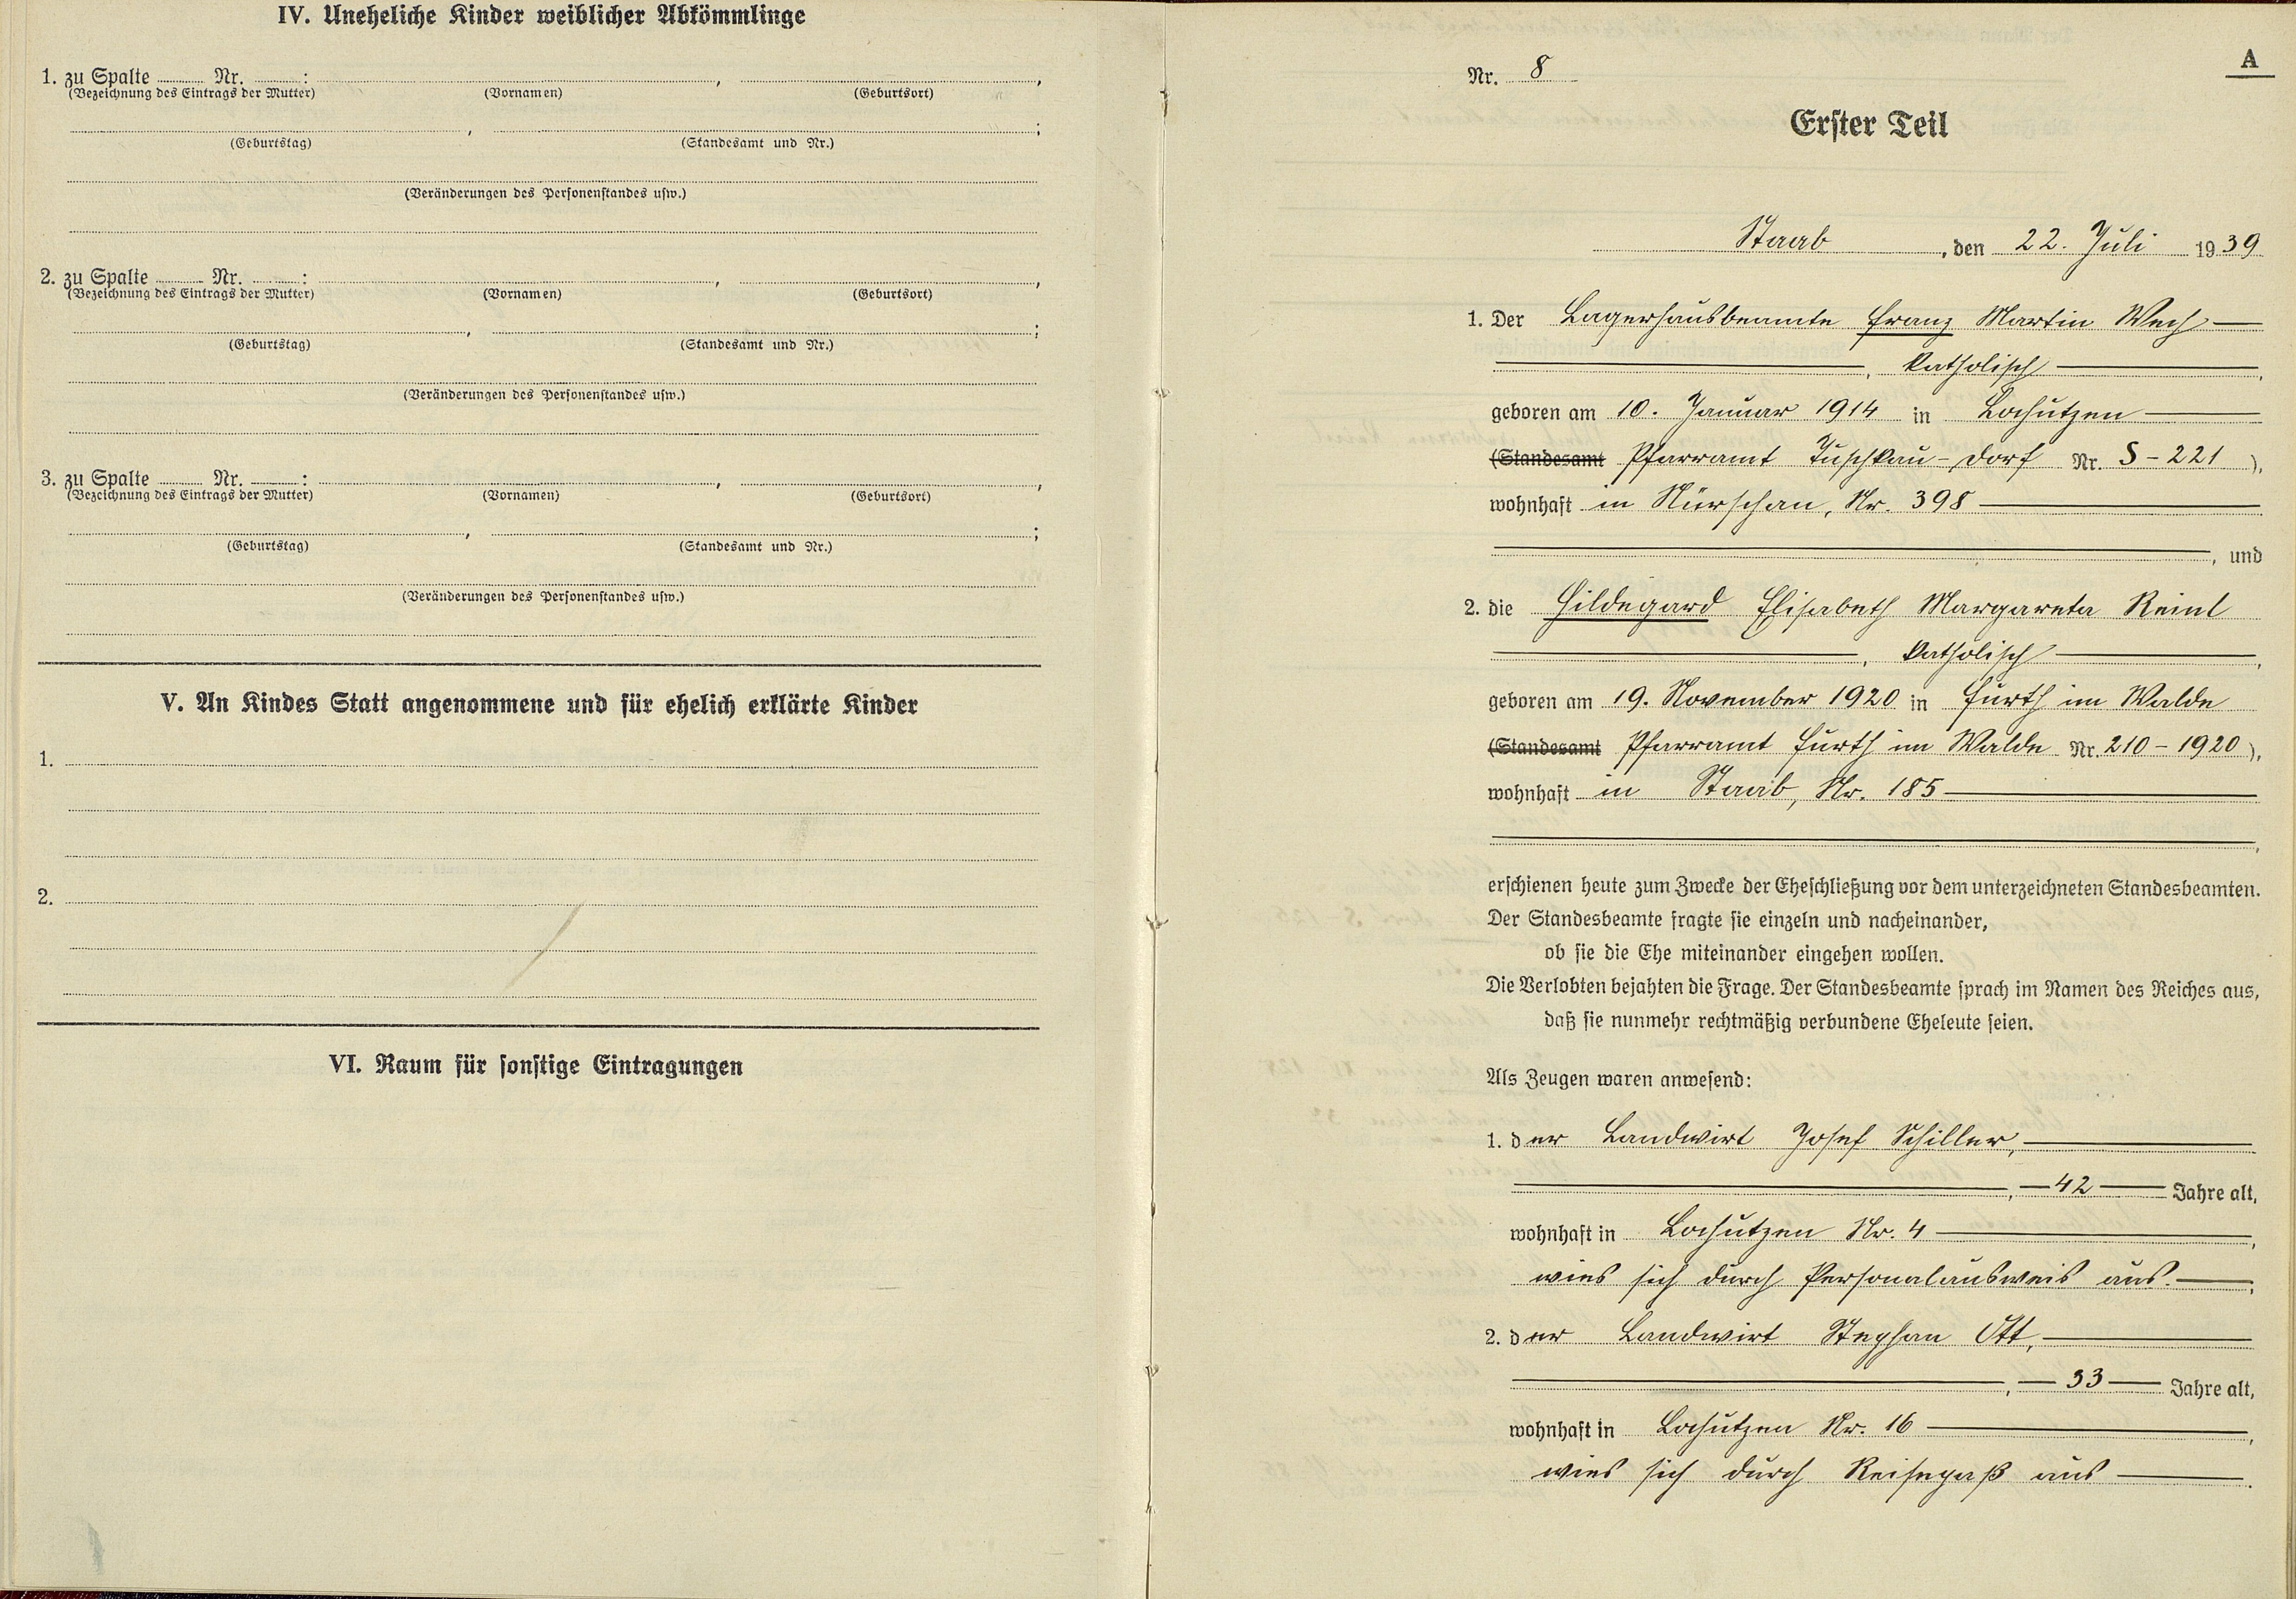 IV. Uneheliche Kinder weiblicher Abkömmlinge
1. zu Spalte ........ Nr. ........ : ........ , ........ ,
(Bezeichnung des Eintrags der Mutter) (Vornamen) (Geburtsort)
........ , ........ ;
(Geburtstag) (Standesamt und Nr.)
(Veränderungen des Personenstandes usw.)
2. zu Spalte ........ Nr. ........ : ........ , ........ ,
(Bezeichnung des Eintrags der Mutter) (Vornamen) (Geburtsort)
........ , ........ ;
(Geburtstag) (Standesamt und Nr.)
(Veränderungen des Personenstandes usw.)
3. zu Spalte ........ Nr. ........ : ........ , ........ ,
(Bezeichnung des Eintrags der Mutter) (Vornamen) (Geburtsort)
........ , ........ ;
(Geburtstag) (Standesamt und Nr.)
(Veränderungen des Personenstandes usw.)
V. An Kindes Statt angenommene und für ehelich erklärte Kinder
1.
2.
VI. Raum für sonstige Eintragungen
A
Nr. 8
Erster Teil
Staab, den 22. Juli 1939
1. Der Lagerhausbeamte Franz Martin Wech
, katholisch,
geboren am 10. Januar 1914 in Lochutzen
(Standesamt Pfarramt Tuschkau-Dorf Nr. S-221),
wohnhaft in Nürschan, Nr. 398
, und
2. die Hildegard Elisabeth Margareta Reinl
, katholisch,
geboren am 19. November 1920 in Furth im Walde
(Standesamt Pfarramt Furth im Walde Nr. 210-1920),
wohnhaft in Staab, Nr. 185
,
erschienen heute zum Zwecke der Eheschließung vor dem unterzeichneten Standesbeamten.
Der Standesbeamte fragte sie einzeln und nacheinander,
ob sie die Ehe miteinander eingehen wollen.
Die Verlobten bejahten die Frage. Der Standesbeamte sprach im Namen des Reiches aus,
daß sie nunmehr rechtmäßig verbundene Eheleute seien.
Als Zeugen waren anwesend:
1. der Landwirt Josef Schiller,
, 42 Jahre alt,
wohnhaft in Lochutzen Nr. 4,
wies sich durch Personalausweis aus.;
2. der Landwirt Stephan Ott,
, 33 Jahre alt,
wohnhaft in Lochutzen Nr. 16,
wies sich durch Reisepaß aus.